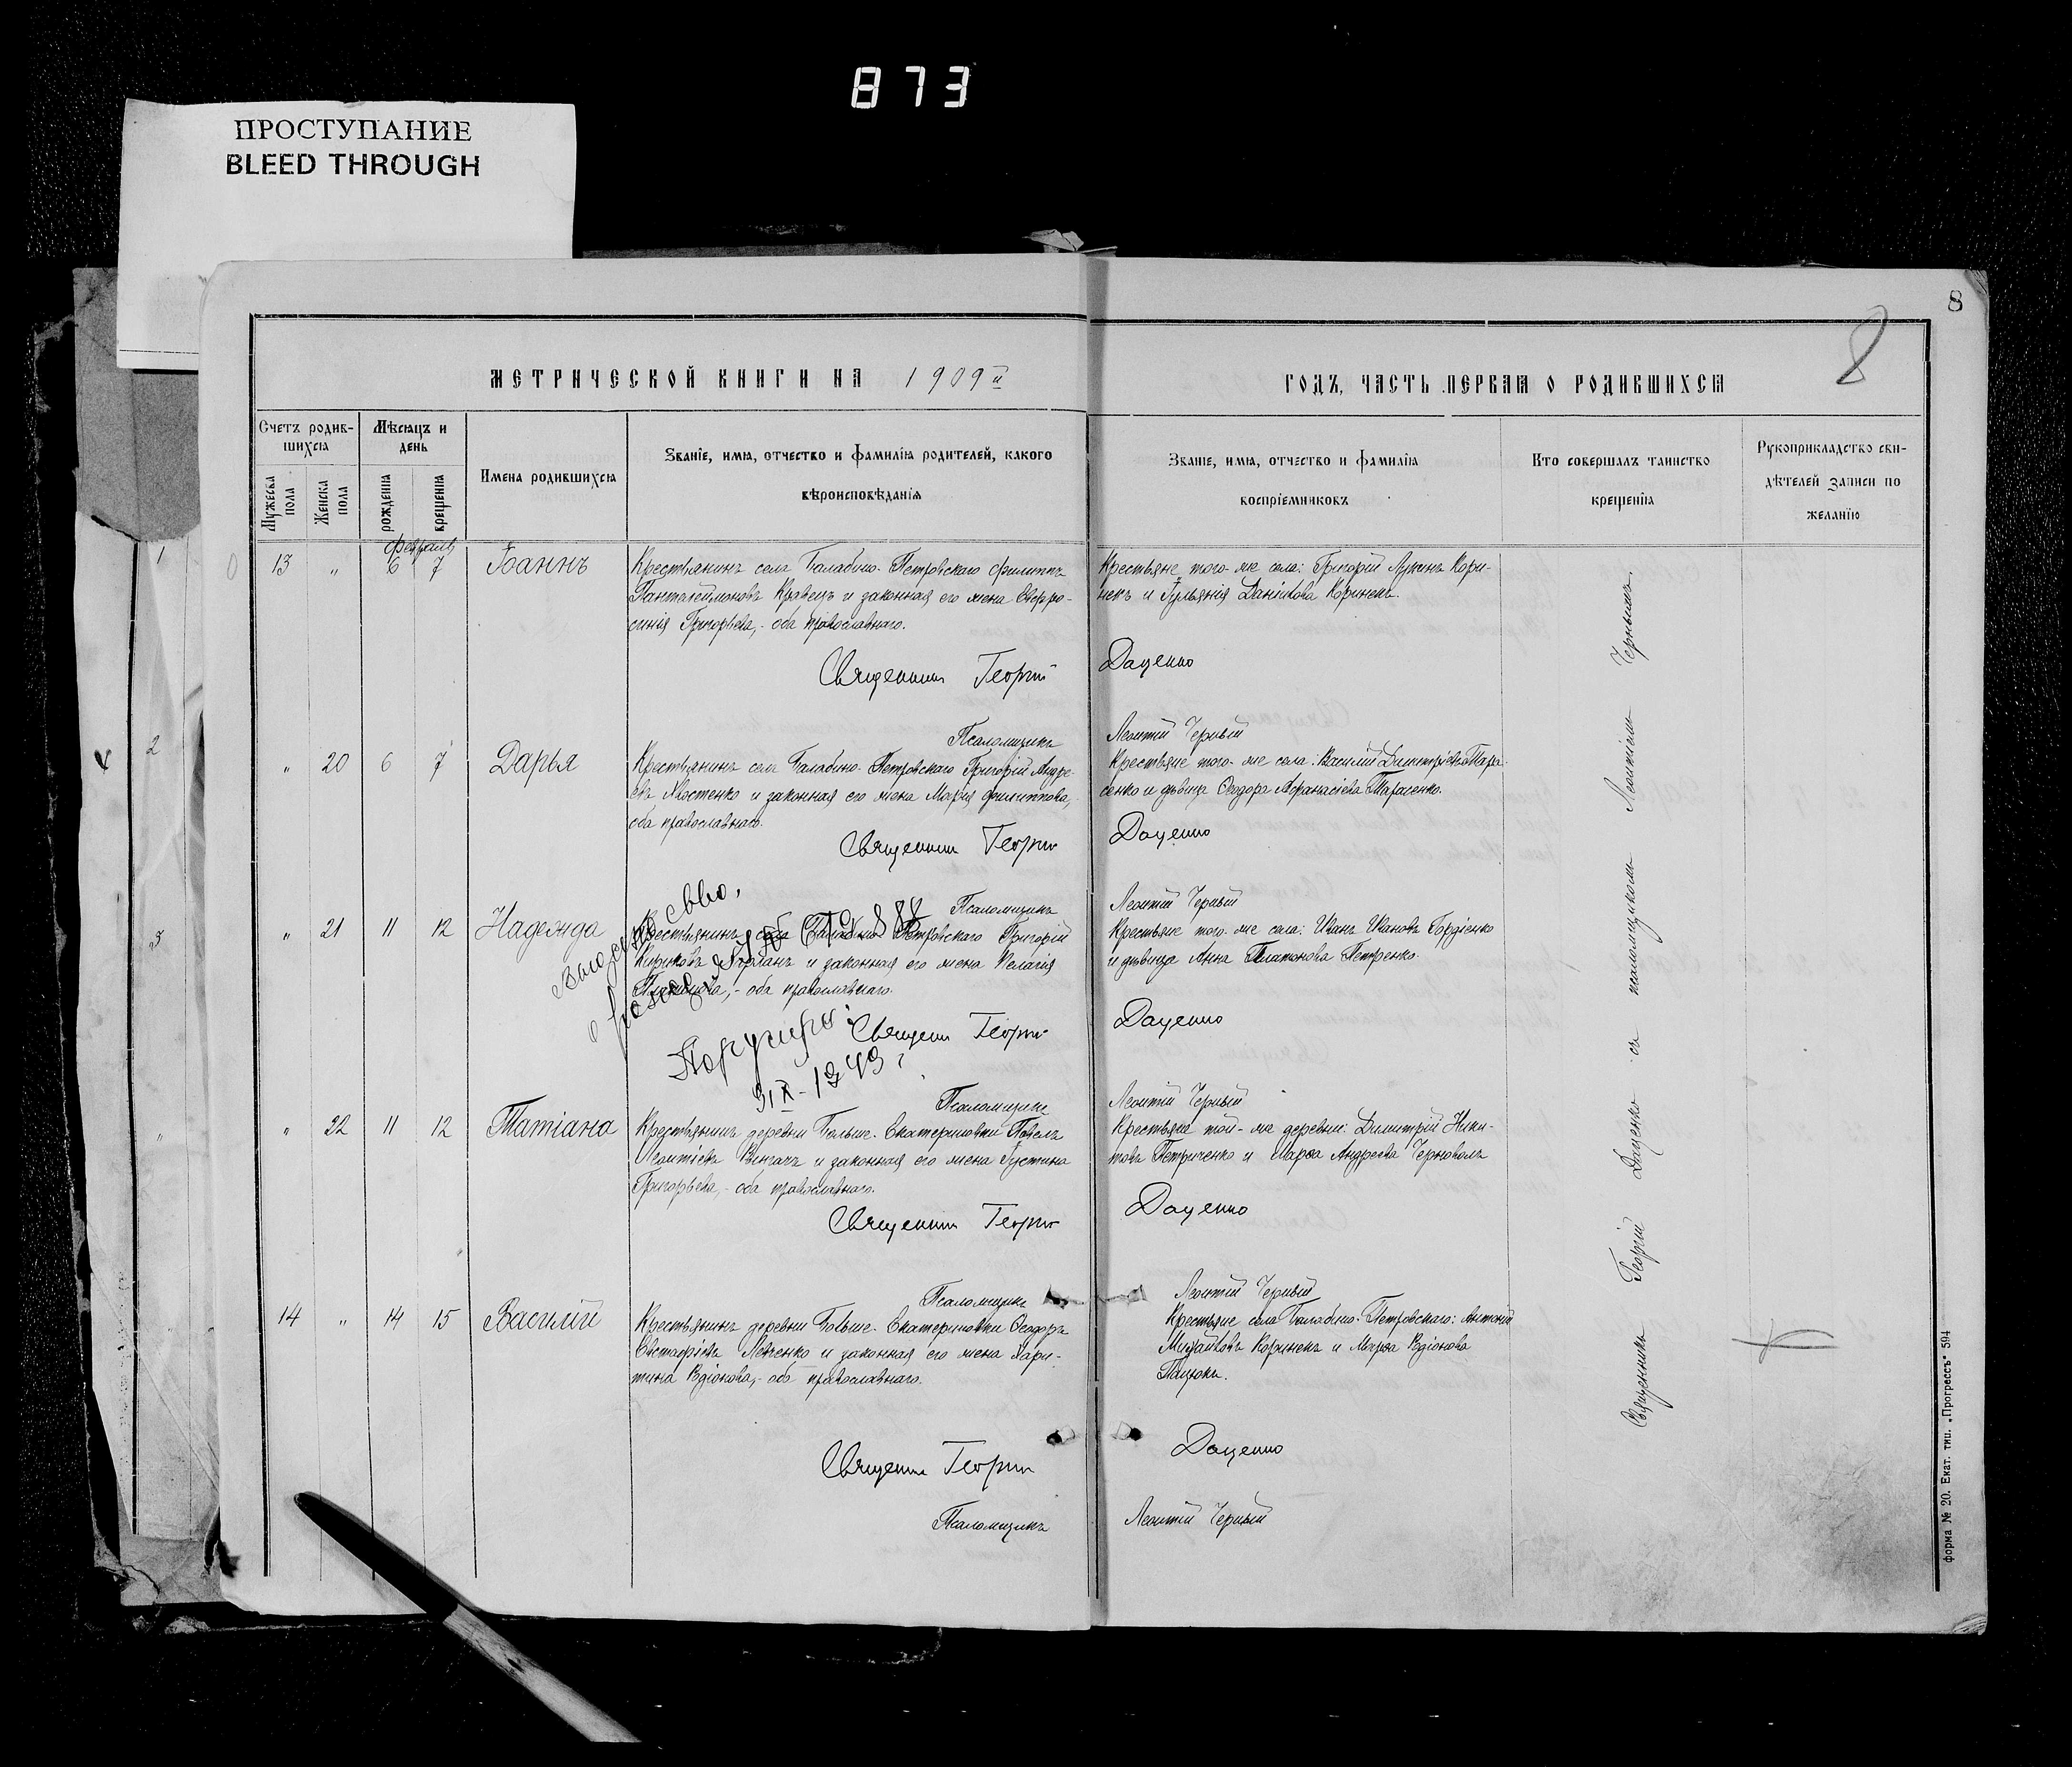 873
ПРОСТУПАНИЕ
BLEED THROUGH
8
8
МЕТРИЧЕСКОЙ КНИГИ НА 1909й
ГОДЪ, ЧАСТЬ ПЕРВАЯ О РОДИВШИХСЯ
Счетъ родив-
шихся
Мужеска пола
Женска пола
Мѣсяцъ и
день
рожденія
крещенія
Имена родившихся
Званіе, имя, отчество и фамилія родителей, какого
вѣроисповѣданія
Званіе, имя, отчество и фамилія
воспріемниковъ
Кто совершалъ таинство
крещенія
Рукоприкладство сви-
дѣтелей записи по
желанію
февраль
13 " 6 7 Іоаннъ
Крестьянинъ села Балабино-Петровскаго Филиппъ
Пантелеймоновъ Кравецъ и законная его жена Евфро-
синія Григорьева,- оба православнаго.
Крестьяне того-же села: Григорій Лукинъ Кори-
некъ и Іуліанія Даніилова Коринекъ.
Священникъ Георгій Даценко
Псаломщикъ Леонтій Черный
" 20 6 7 Дарья
Крестьянинъ села Балабино-Петровскаго Григорій Андре-
евъ Хвостенко и законная его жена Марія Филиппова,-
оба православнаго.
Крестьяне того-же села: Василій Димитріевъ Тара-
сенко и дѣвица Ѳеодора Афанасіева Тарасенко.
Священникъ Георгій Даценко
Псаломщикъ Леонтій Черный
" 21 11 12 Надежда
Крестьянинъ села Балабино-Петровскаго Григорій
Кириковъ и законная его жена Пелагія
оба православнаго.
Крестьяне того-же села: Иванъ Ивановъ Гордіенко
и дѣвица Анна Платонова Петренко.
Священникъ Георгій Даценко
Псаломщикъ Леонтій Черный
" 22 11 12 Татіана
Крестьянинъ деревни Больше-Екатериновки Павелъ
Леонтіевъ и законная его жена Іустина
Григорьева,- оба православнаго.
Крестьяне той-же деревни: Димитрій Ники-
товъ Петриченко и Марѳа Андреева Черноволъ
Священникъ Георгій Даценко
Псаломщикъ Леонтій Черный
14 " 14 15 Василій
Крестьянинъ деревни Больше-Екатериновки Ѳеодоръ
Евстафіевъ Левченко и законная его жена Хари-
тина Родіонова,- оба православнаго.
Крестьяне села Балабино-Петровскаго: Антоній
Михайловъ Коринекъ и Марѳа Родіонова
Пацюкъ.
Священникъ Георгій Даценко
Псаломщикъ Леонтій Черный
Священникъ Георгій Даценко съ псаломщикомъ Леонтіемъ Чернымъ.
форма № 20. Екат. тип. „Прогрессъ" 594